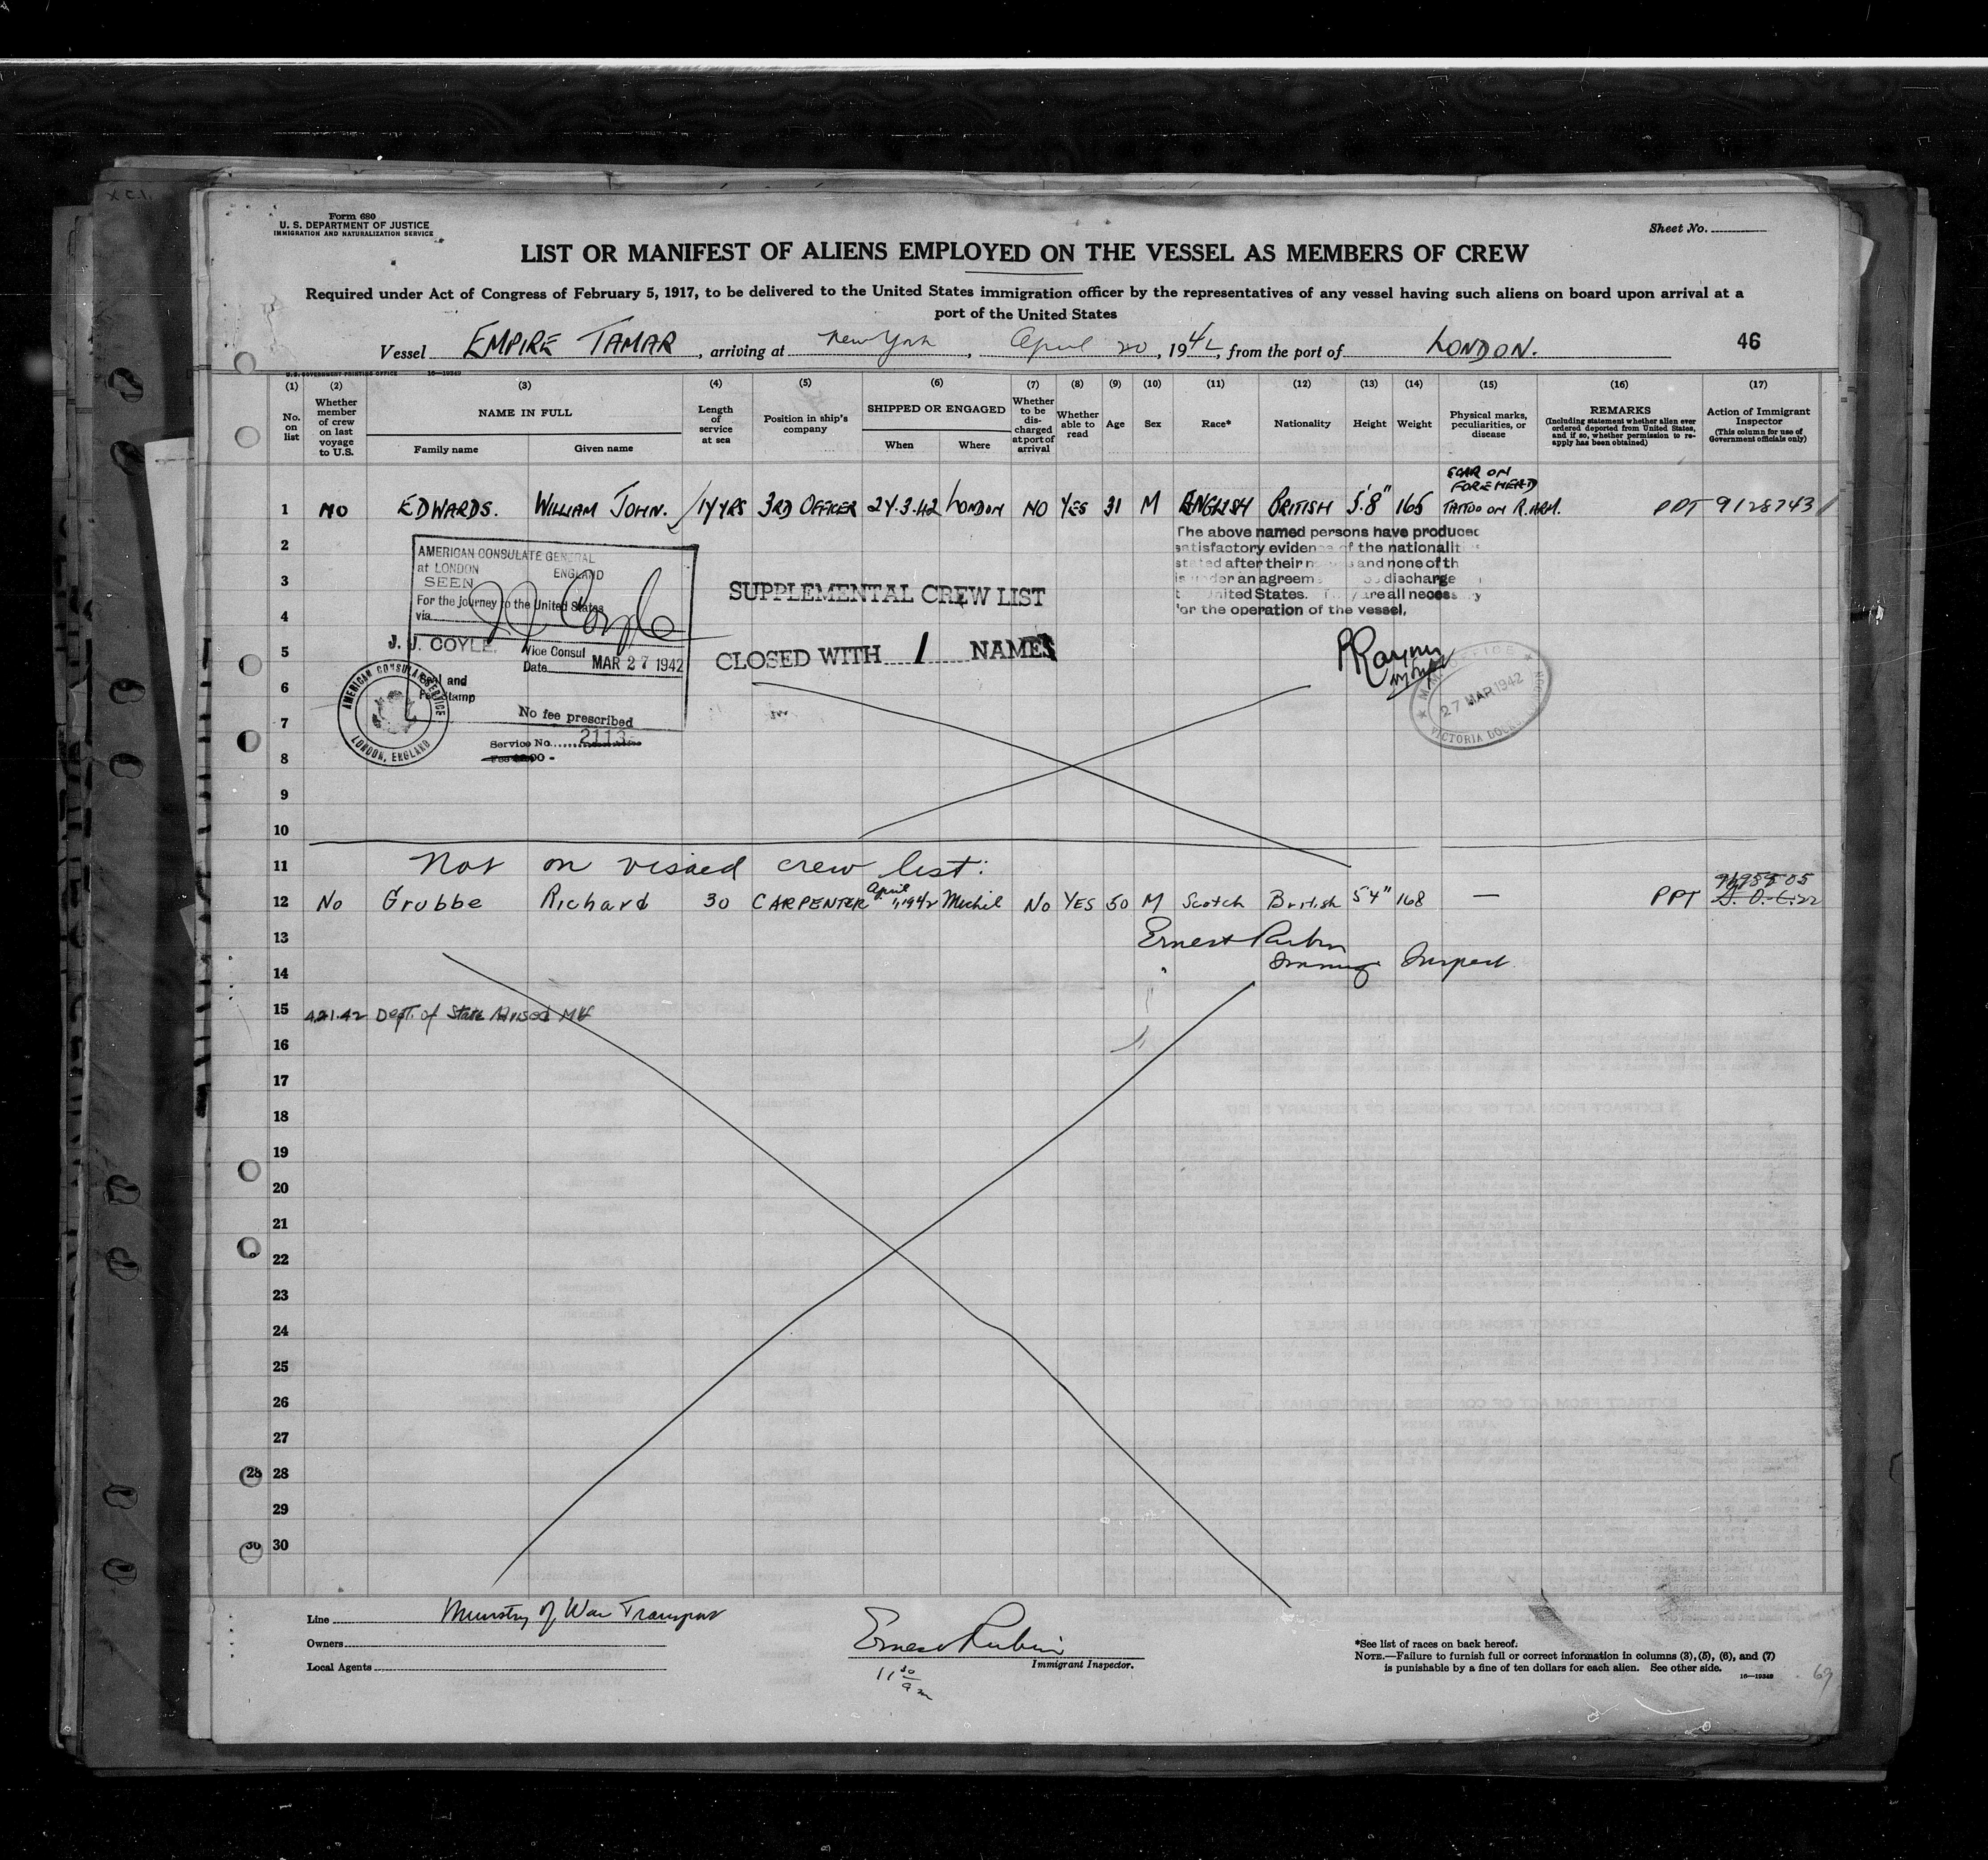 Form 680
U. S. DEPARTMENT OF JUSTICE
IMMIGRATION AND NATURALIZATION SERVICE
Sheet No.
LIST OR MANIFEST OF ALIENS EMPLOYED ON THE VESSEL AS MEMBERS OF CREW
Required under Act of Congress of February 5, 1917, to be delivered to the United States immigration officer by the representatives of any vessel having such aliens on board upon arrival at a
port of the United States
Vessel EMPIRE TAMAR, arriving at New York, April 20, 1942, from the port of LONDON.
46
U. S. GOVERNMENT PRINTING OFFICE 16—19349
(1) (2) (3) (4) (5) (6) (7) (8) (9) (10) (11) (12) (13) (14) (15) (16) (17)
No. on list
Whether member of crew on last voyage to U.S.
NAME IN FULL
Family name
Given name
Length of service at sea
Position in ship's company
SHIPPED OR ENGAGED
When
Where
Whether to be discharged at port of arrival
Whether able to read
Age
Sex
Race*
Nationality
Height
Weight
Physical marks, peculiarities, or disease
REMARKS
(Including statement whether alien ever ordered deported from United States, and if so, whether permission to reapply has been obtained)
Action of Immigrant Inspector
(This column for use of Government officials only)
SCAR ON
FOREHEAD
1 NO EDWARDS. WILLIAM JOHN. 14 YRS 3RD OFFICER 24.3.42 LONDON NO YES 31 M ENGLISH BRITISH 5'8" 165 TATTOO ON R. ARM. PPT 9128743
The above named persons have produced
satisfactory evidence of the nationalit
stated after their n and none of th
is under an agreem discharge
t United States. T y are all necessary
for the operation of the vessel,
2
3
4
5
6
7
8
9
10
AMERICAN CONSULATE GENERAL
at LONDON ENGLAND
SEEN
For the journey to the United States
via
J J Coyle
J. J. COYLE.
Vice Consul
Date MAR 27 1942
Seal and
Fee Stamp
No fee prescribed
Service No. 2113
AMERICAN CONSULAR SERVICE
LONDON, ENGLAND
SUPPLEMENTAL CREW LIST
CLOSED WITH 1 NAME
27 MAR 1942
VICTORIA DOCK
11 Not on visaed crew list:
12 No Grubbe Richard 30 CARPENTER April 1, 1942 Methil No YES 50 M Scotch British 5'4" 168 — PPT
13
Ernest Rubin
Immig. Inspect
14
15 4.21.42 Dept. of State Advised
16
17
18
19
20
21
22
23
24
25
26
27
28 28
29
30 30
Line Ministry of War Transport
Owners
Local Agents
Ernest Rubin
Immigrant Inspector.
11 30 am
*See list of races on back hereof.
NOTE.—Failure to furnish full or correct information in columns (3), (5), (6), and (7)
is punishable by a fine of ten dollars for each alien. See other side.
16—19349
69